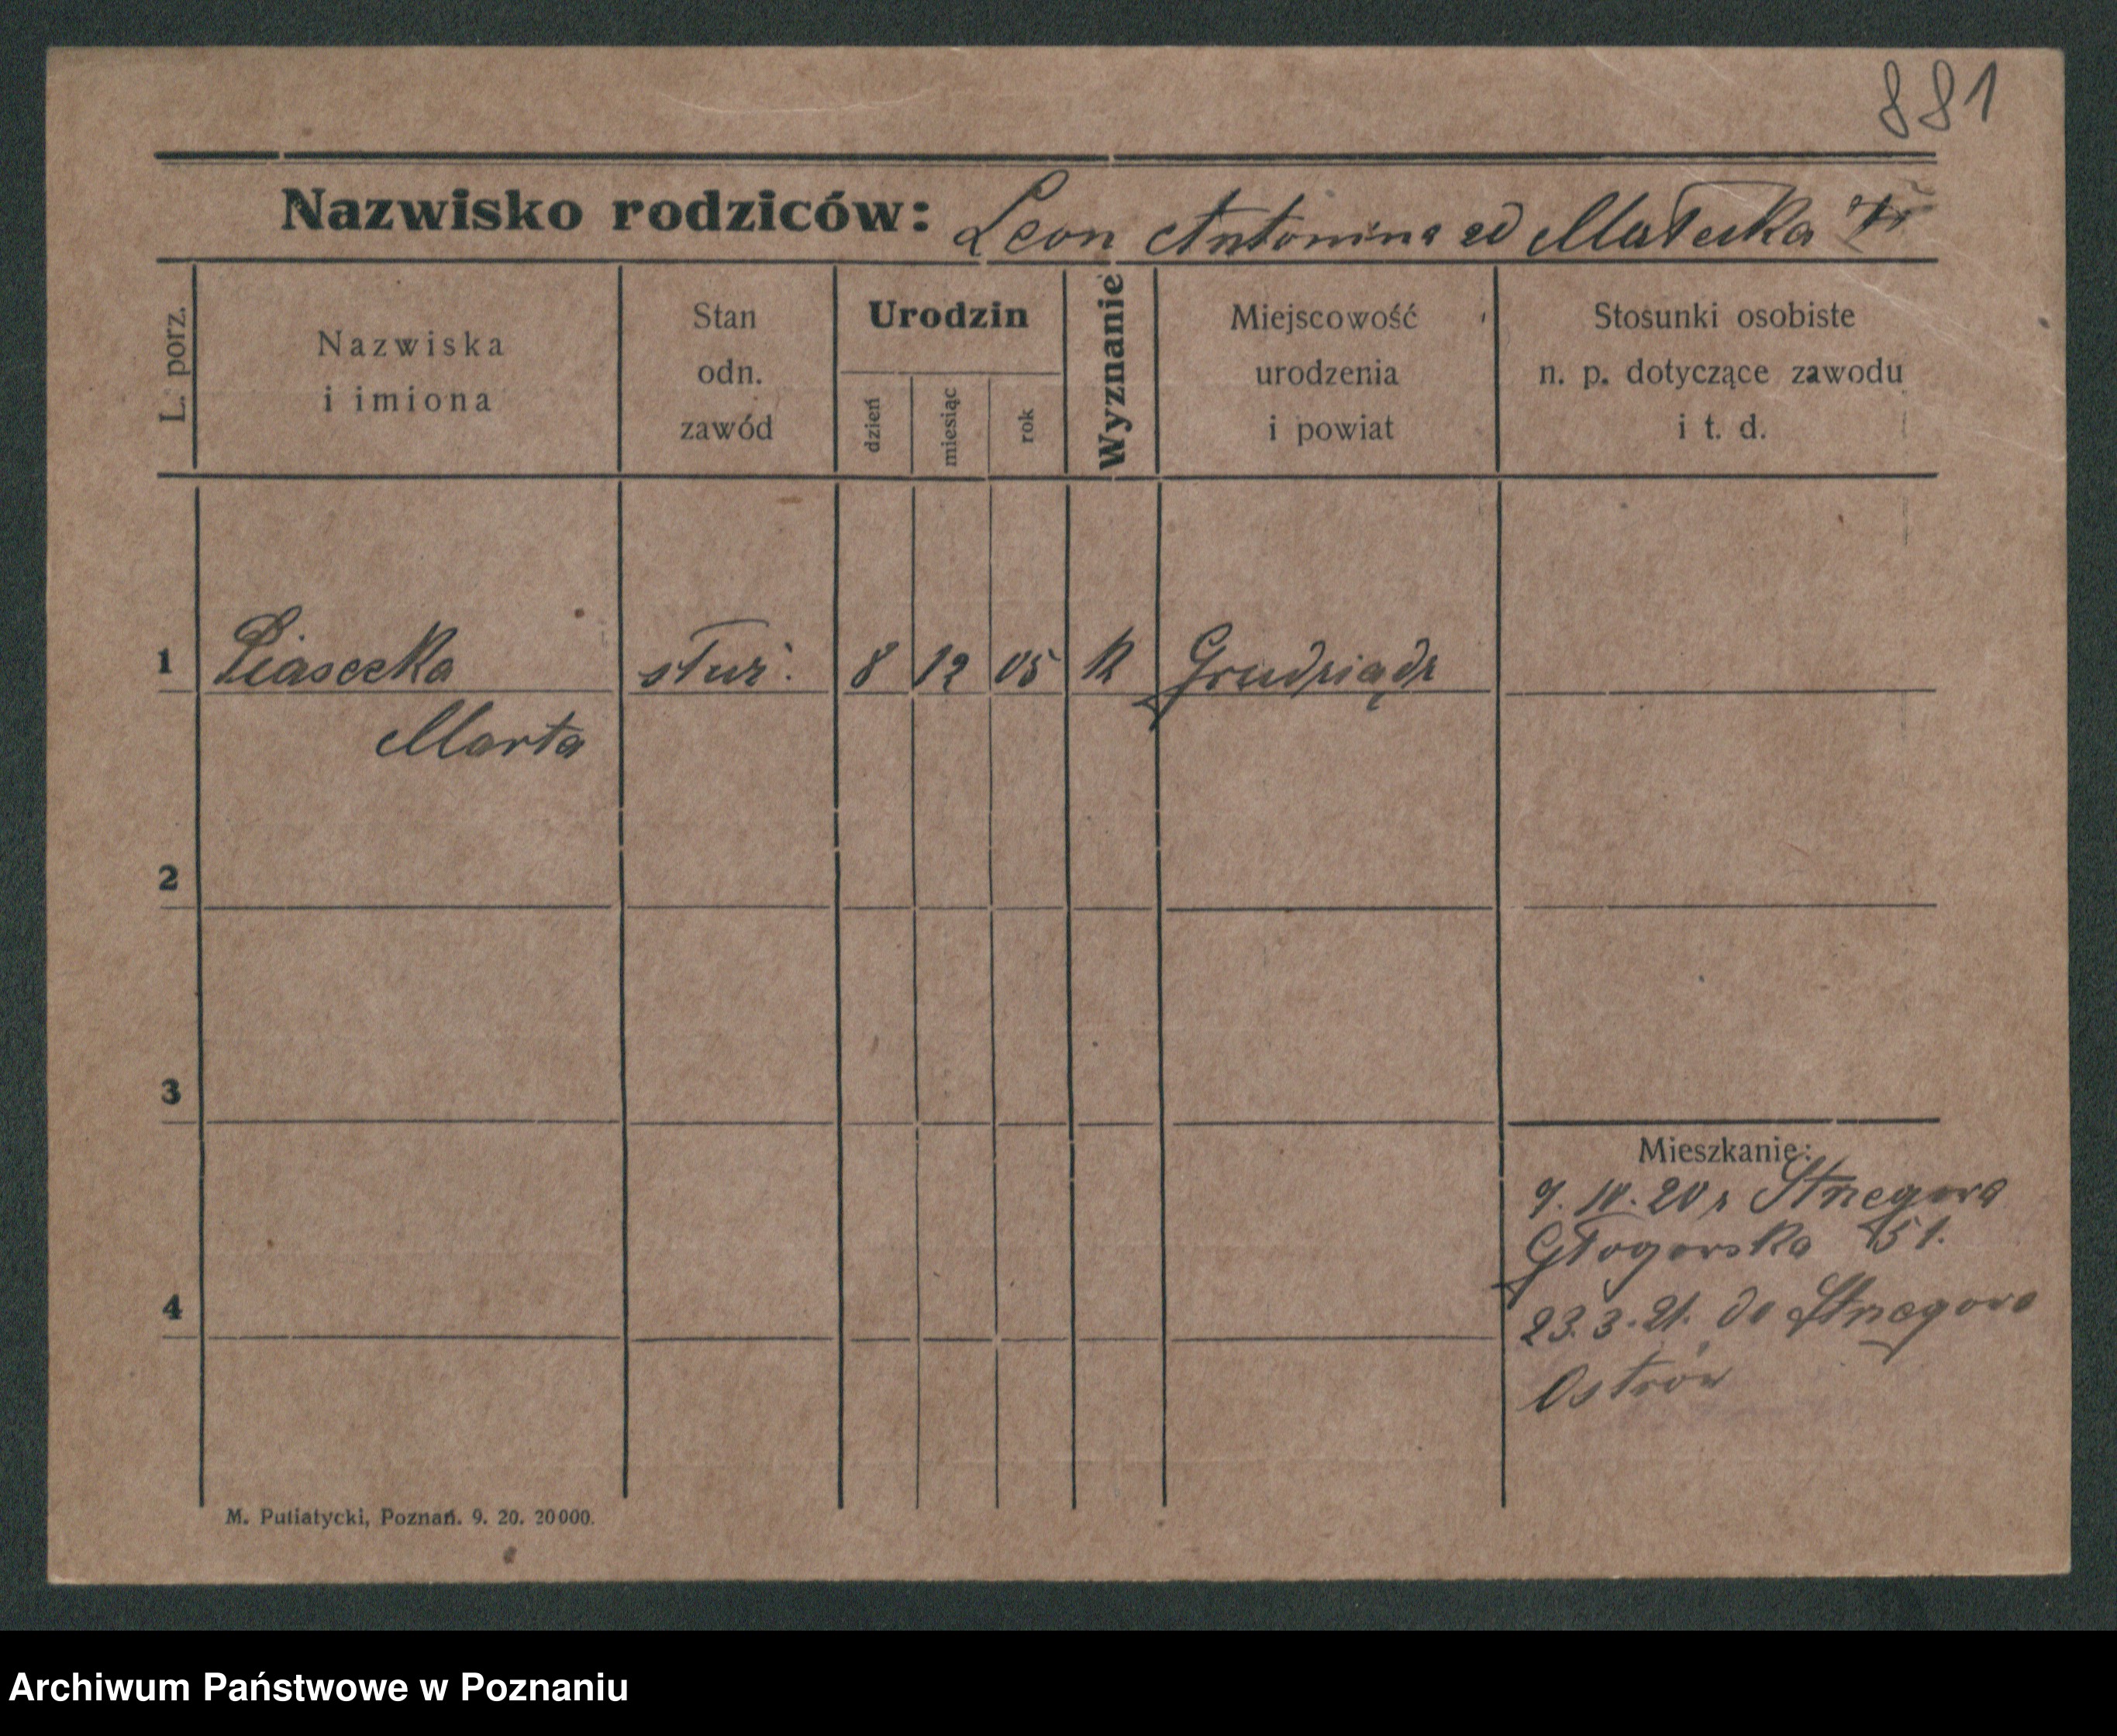 881
Nazwisko rodziców: Leon Antonina zd Małecka
L. porz.
Nazwiska
i imiona
Stan
odn.
zawód
Urodzin
dzień
miesiąc
rok
Wyznanie
Miejscowość
urodzenia
i powiat
Stosunki osobiste
n. p. dotyczące zawodu
i t. d.
1 Piasecka służ. 8 12 05 k Grudziądz
Marta
2
3
4
Mieszkanie:
20 z Strzegowa
Głogowska 51.
23.3.21. do Strzegowa
Ostrów
M. Putiatycki, Poznań. 9. 20. 20000.
Archiwum Państwowe w Poznaniu